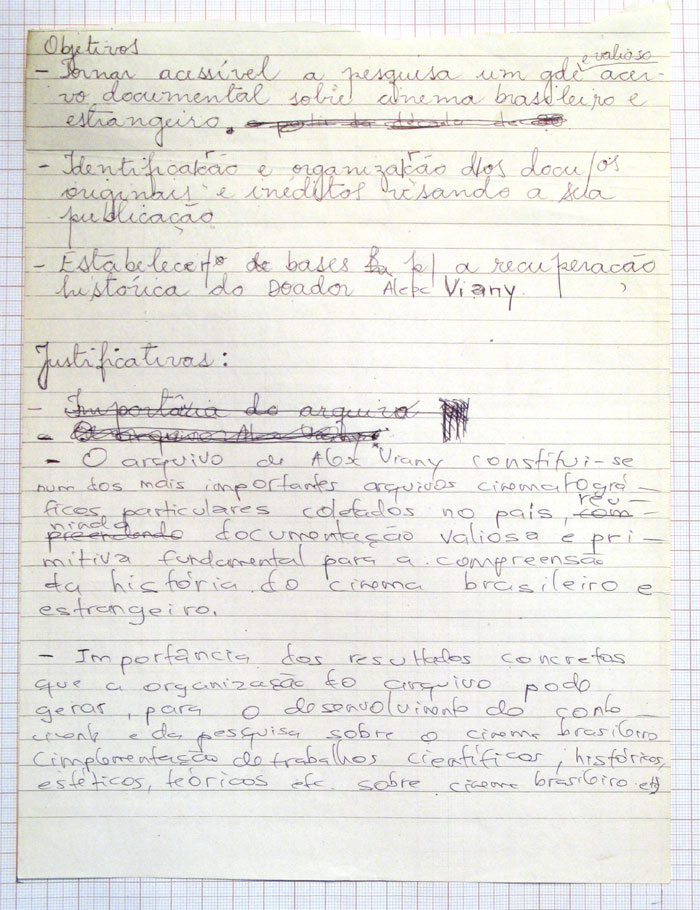 Objetivos
- Tornar acessível a pesquisa um gde e valioso acer-
vo documental sobre cinema brasileiro e
estrangeiro.
- Identificar e organizar os docu/os
originais e inéditos visando a sua
publicação
- Estabelecer bases p/ a recuperação
histórica do Doador Alex Viany.
Justificativas:
- Importância do arquivo
- O arquivo de Alex Viany constitui-se
num dos mais importantes arquivos cinematográ-
ficos particulares coletados no país, reu-
nindo documentação valiosa e pri-
mitiva fundamental para a compreensão
da história do cinema brasileiro e
estrangeiro.
- Importância dos resultados concretos
que a organização do arquivo pode
gerar, para o desenvolvimento do conhe-
cimento e da pesquisa sobre o cinema brasileiro
(implementação de trabalhos científicos, históricos,
estéticos, teóricos etc. sobre cinema brasileiro etc)